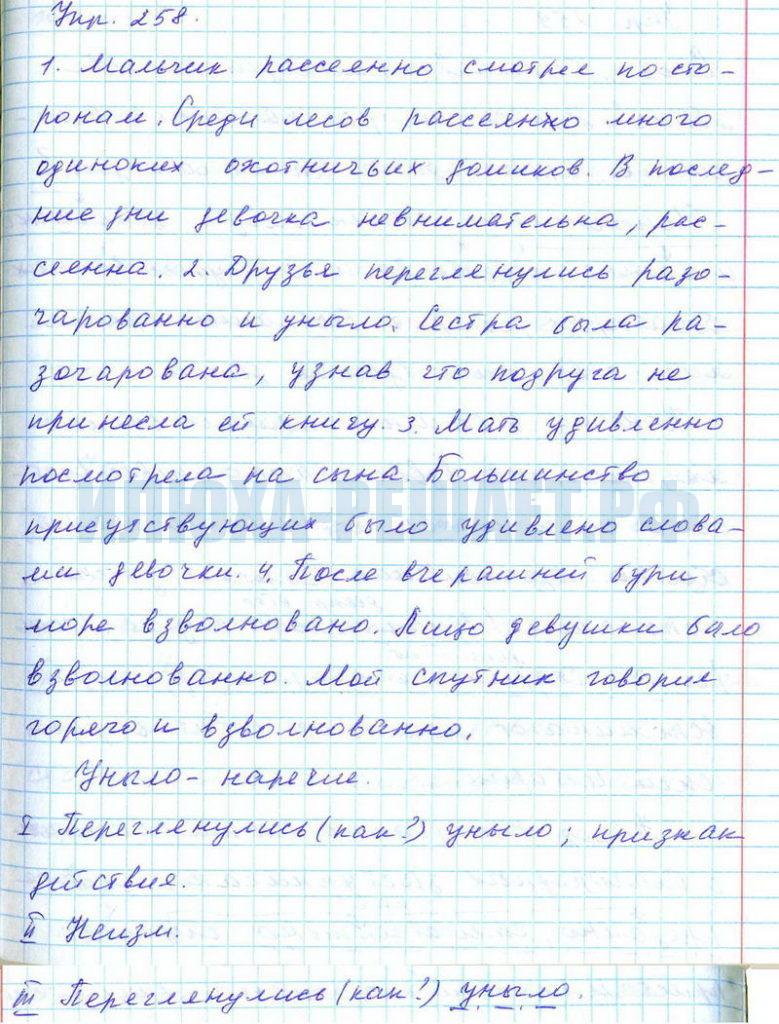 Упр. 258.
1. Мальчик рассеянно смотрел по сто-
ронам. Среди лесов рассеяно много
одиноких охотничьих домиков. В послед-
ние дни девочка невнимательна, рас-
сеянна. 2. Друзья переглянулись разо-
чарованно и уныло. Сестра была ра-
зочарована, узнав что подруга не
принесла ей книгу. 3. Мать удивленно
посмотрела на сына. Большинство
присутствующих было удивлено слова-
ми девочки. 4. После вчерашней бури
море взволновано. Лицо девушки было
взволнованно. Мой спутник говорил
горячо и взволнованно.
Уныло - наречие.
I Переглянулись (как?) уныло; признак
действия.
II Неизм.
III Переглянулись (как?) уныло.
ИПОХА-РЕШАЕТ.РФ